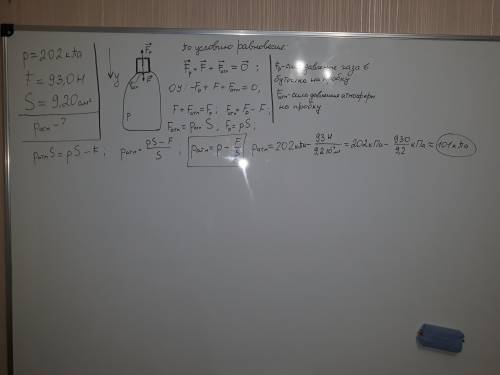 p = 202 кПа
F = 93,0 Н
S = 9,20 см²
pатм - ?
Fp
y
F
p
По условию равновесия:
F⃗p + F⃗ + F⃗атм = 0⃗ ;
ОУ: -Fp + F + Fатм = 0;
F + Fатм = Fp ; Fатм = Fp - F;
Fатм = pатм S , Fp = pS ;
Fp - сила давления газа в
бутылке на пробку
Fатм - сила давления атмосферы
на пробку
pатм S = pS - F ; pатм = (pS - F)/S ; pатм = p - F/S pатм = 202 кПа - 93 Н/ = 202 кПа - 930/9,2 кПа ≈ 101 кПа